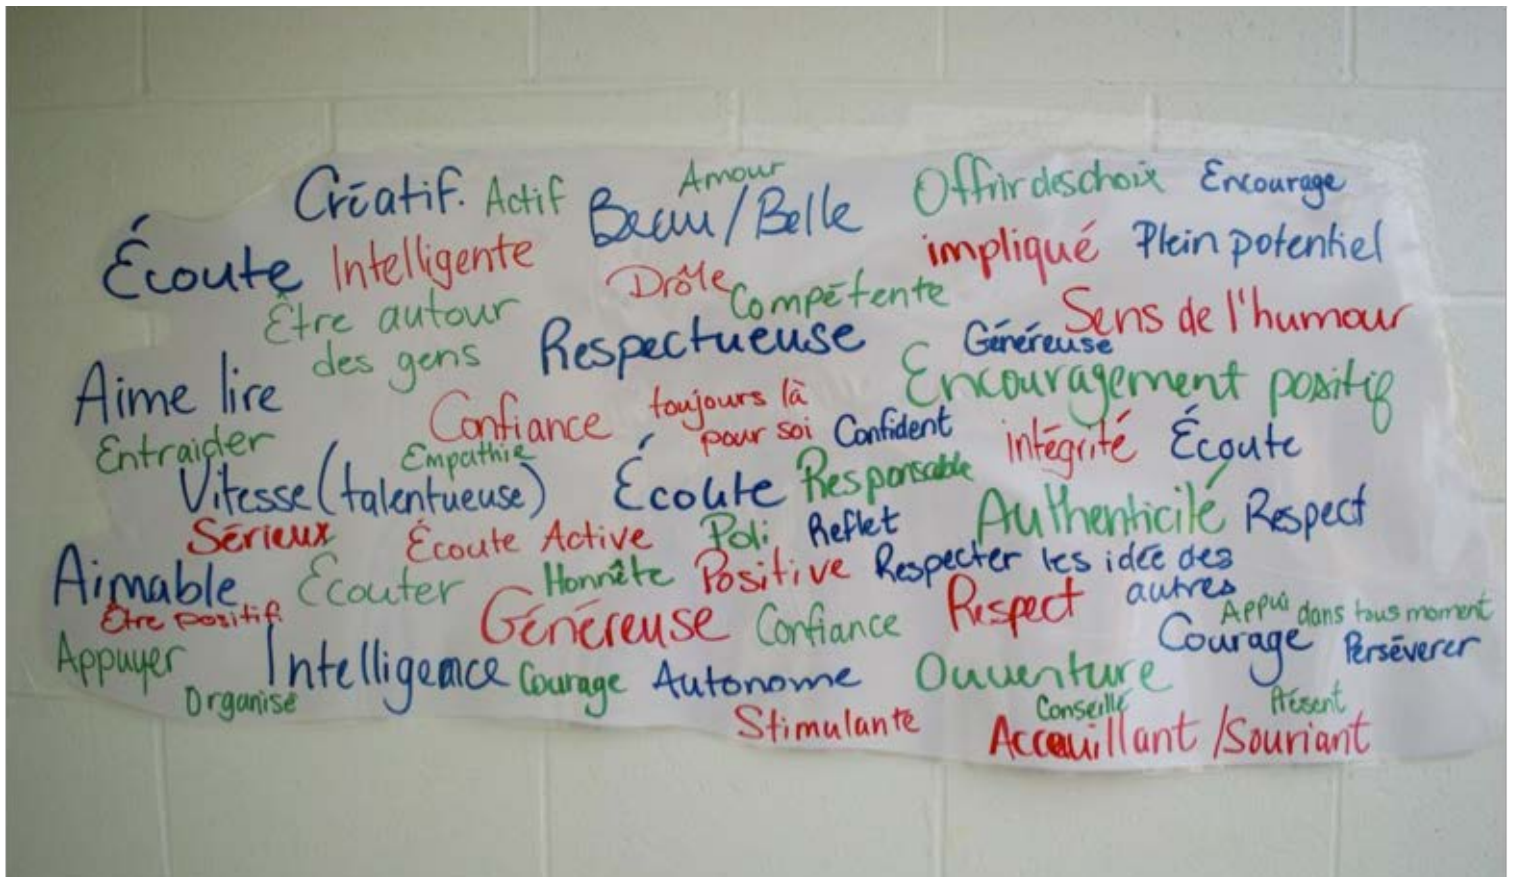 Créatif. Actif Beau/Belle Amour Offrir des choix Encourage
Écoute Intelligente Drôle Compétente impliqué Plein potentiel
Être autour
des gens
Respectueuse Généreuse Sens de l'humour
Aime lire Confiance toujours là
pour soi
Confident Encouragement positif
Entraider Empathie intégrité Écoute
Vitesse (talentueuse) Écoute Responsable Authenticité Respect
Sérieux Écoute Active Poli Reflet
Aimable Écouter Honnête Positive Respecter les idée des
autres
Être positif Généreuse Confiance Respect Appui dans tous moment
Appuyer Intelligence Courage Autonome Ouverture Courage Persévérer
Organisé Stimulante Conseillé Présent
Accueillant /Souriant